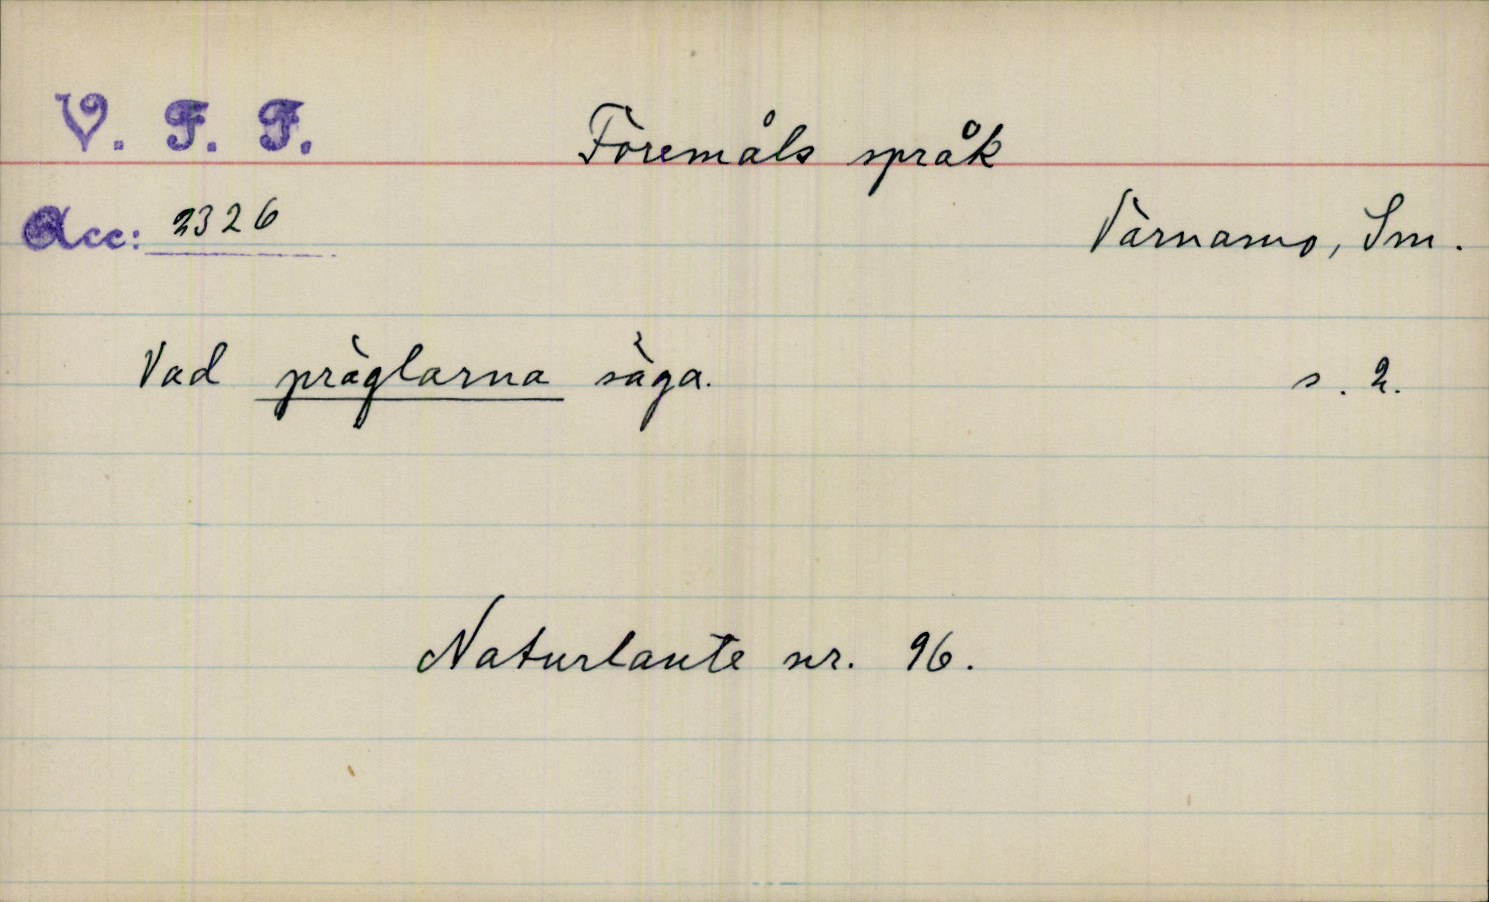 V. F. F.
Föremåls språk
Acc: 2326
Värnamo, Sm.
Vad präglarna säga. s. 2.
Naturlaute nr. 96.